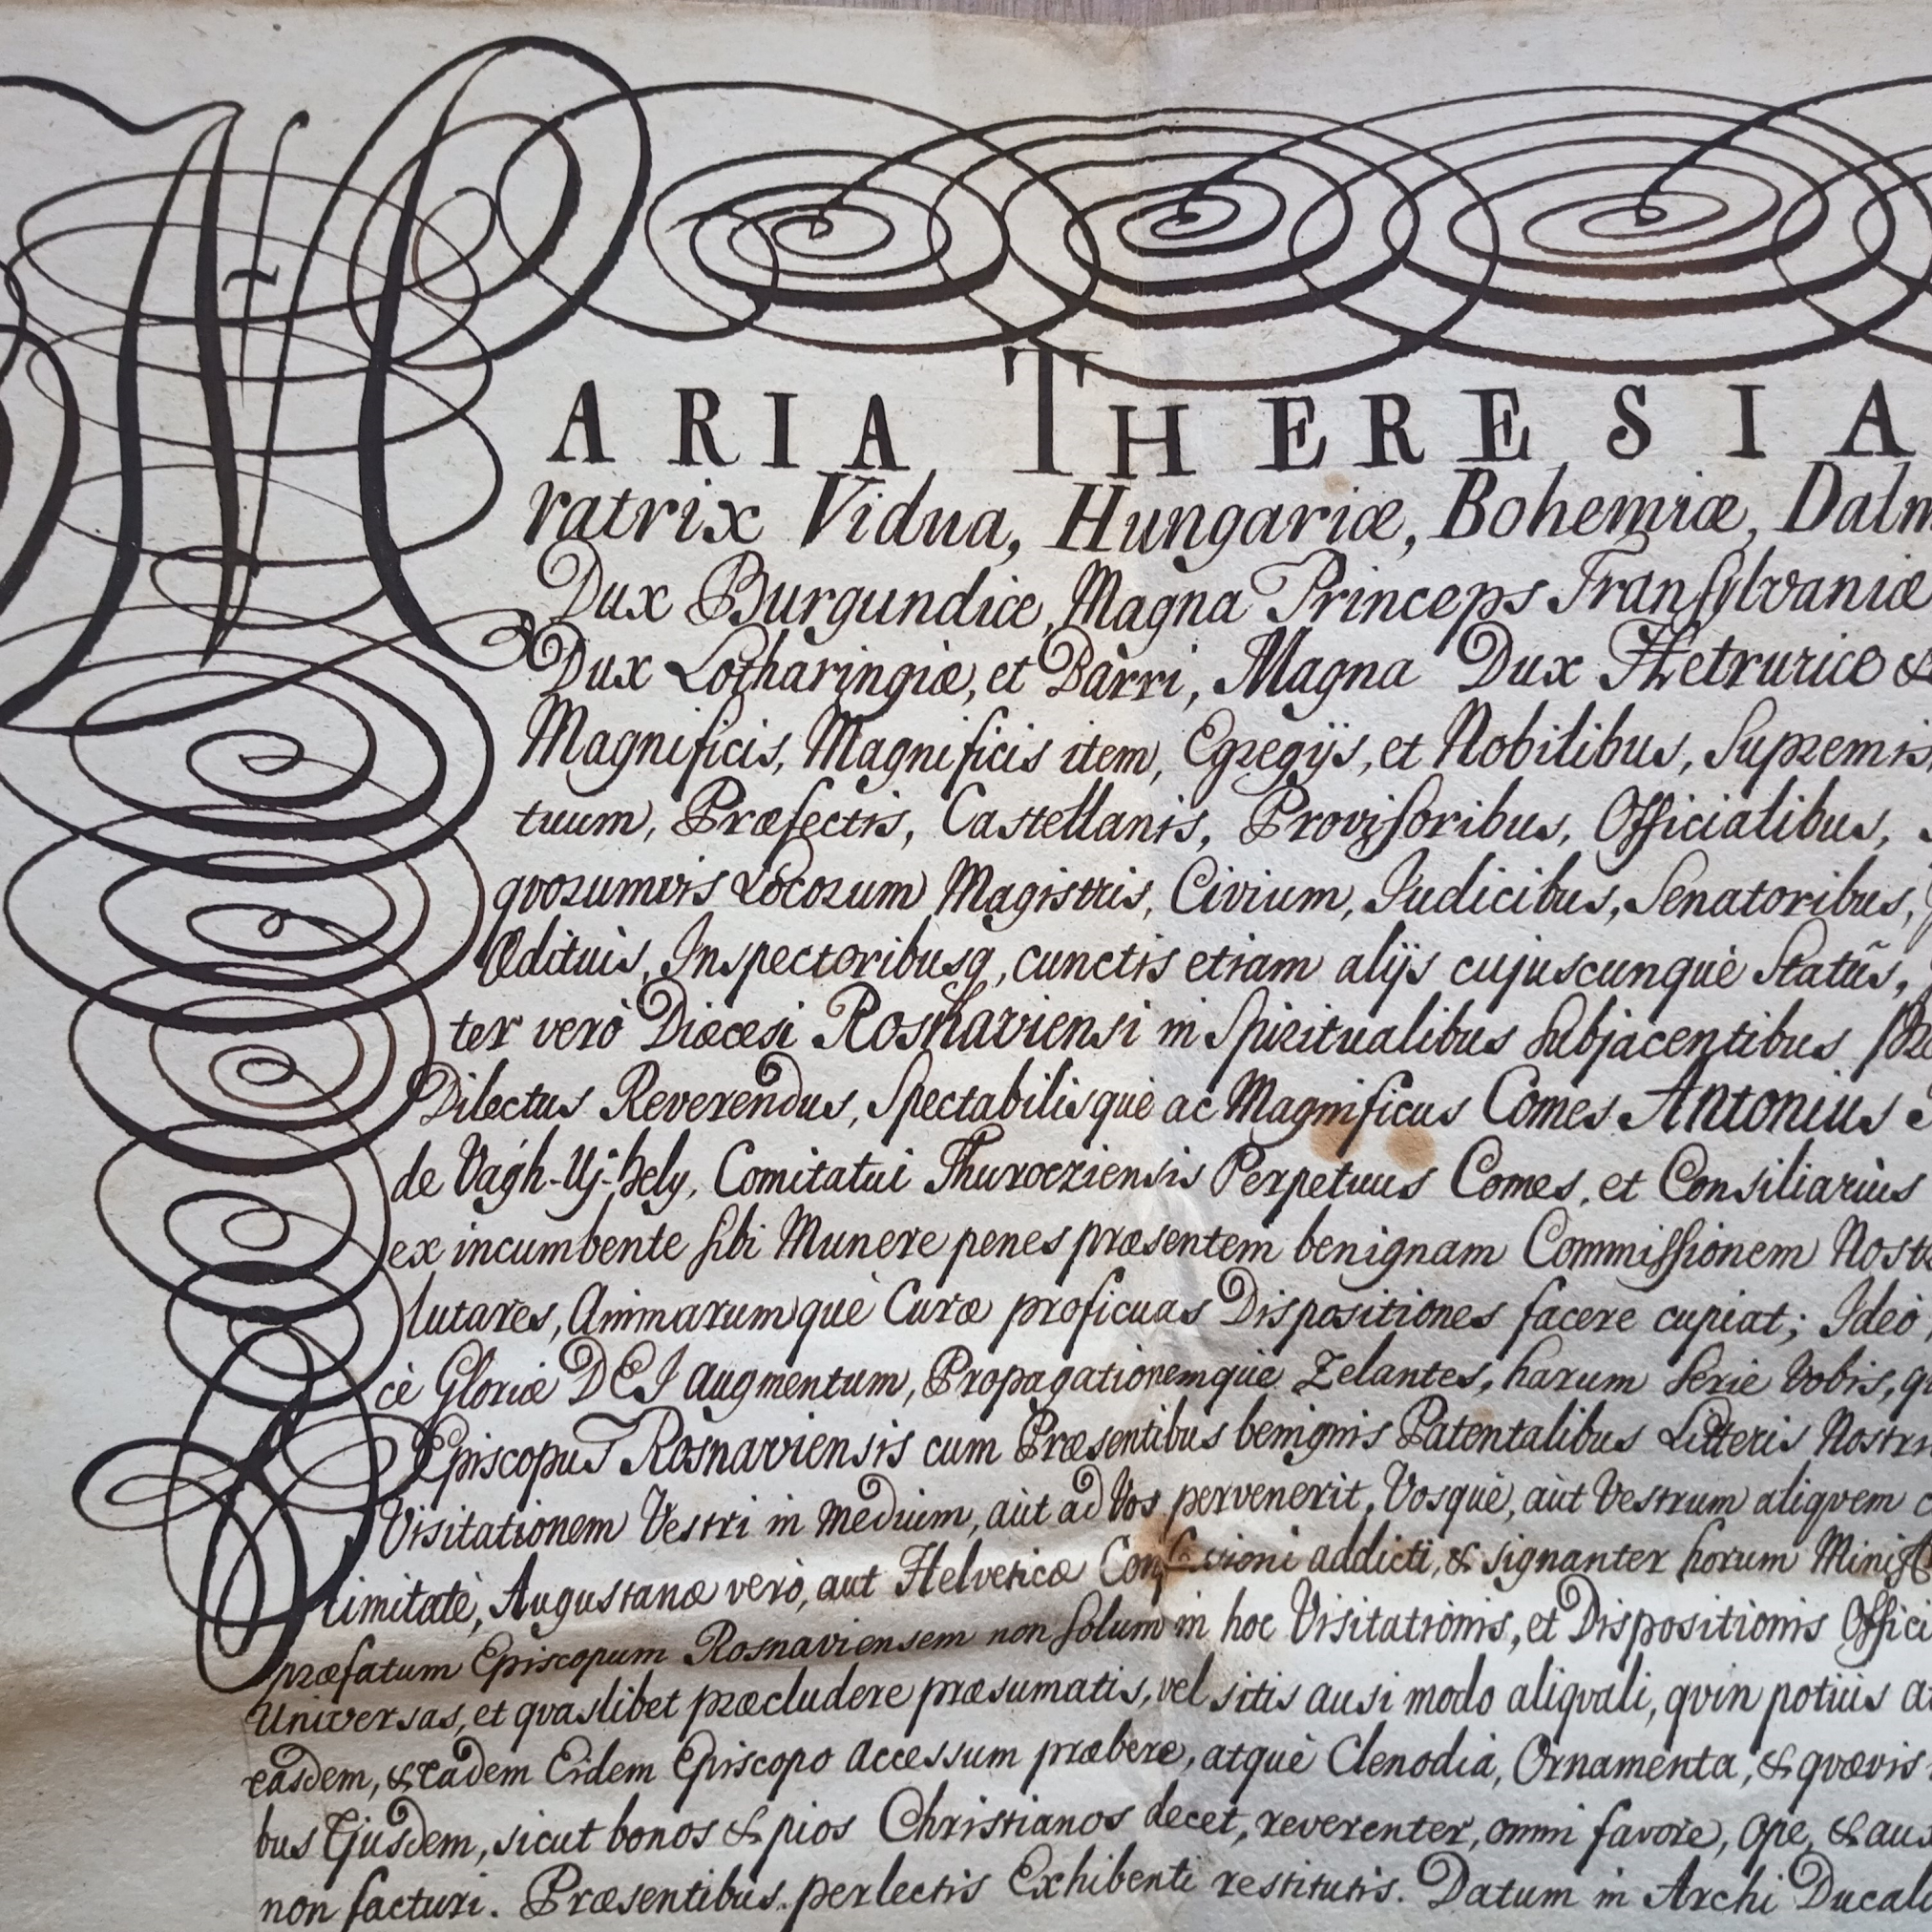 MARIA THERESIA
ratrix Vidua, Hungariæ, Bohemiæ, Dalm
Dux Burgundiæ, Magna Princeps Transylvaniæ
Dux Lotharingiæ, et Barri, Magna Dux Hetruriæ &
Magnificis, Magnificis item, Egregijs, et Nobilibus, Supremis
tuum, Præfectis, Castellanis, Provisoribus, Officialibus,
quorumvis Locorum Magistris, Civium, Judicibus, Senatoribus,
Ædituis, Inspectoribusq, cunctis etiam alijs cujuscunquè Statũs,
ter verò Diœcesi Rosnaviensi in Spiritualibus subjacentibus
Dilectus Reverendus, Spectabilisquè ac Magnificus Comes Antonius
de Vágh-Uj-hely, Comitatui Thurocziensis Perpetuus Comes, et Consiliarius
ex incumbente sibi Munere penes præsentem benignam Commissionem Nost
lutares, Animarumquè Curæ proficuas Dispositiones facere cupiat; Ideò
cè Gloriæ DEI augmentum, Propagationemquè Zelantes, harum Serie Vobis, q
Episcopus Rosnaviensis cum Præsentibus benignis Patentalibus Litteris Nostri
Visitationem Vestri in medium, aùt ad Vos pervenerit, Vosquè, aùt Vestrum aliqvem
timitatè, Augustanæ verò, aut Helveticæ Confessioni addicti, & signanter horum Minist
præfatum Episcopum Rosnaviensem non solum in hoc Visitationis, et Dispositionis Offici
Universas, et qvaslibet præcludere præsumatis, vel sitis ausi modo aliqvali, qvin potiùs a
easdem, & eadem Eidem Episcopo accessum præbere, atquè Clenodia, Ornamenta, & qvævis
bus Ejusdem, sicut bonos & pios Christianos decet, reverenter, omni favore, ope, & aux
non facturi. Præsentibus perlectis Exhibenti restitutis. Datum in Archi Ducal